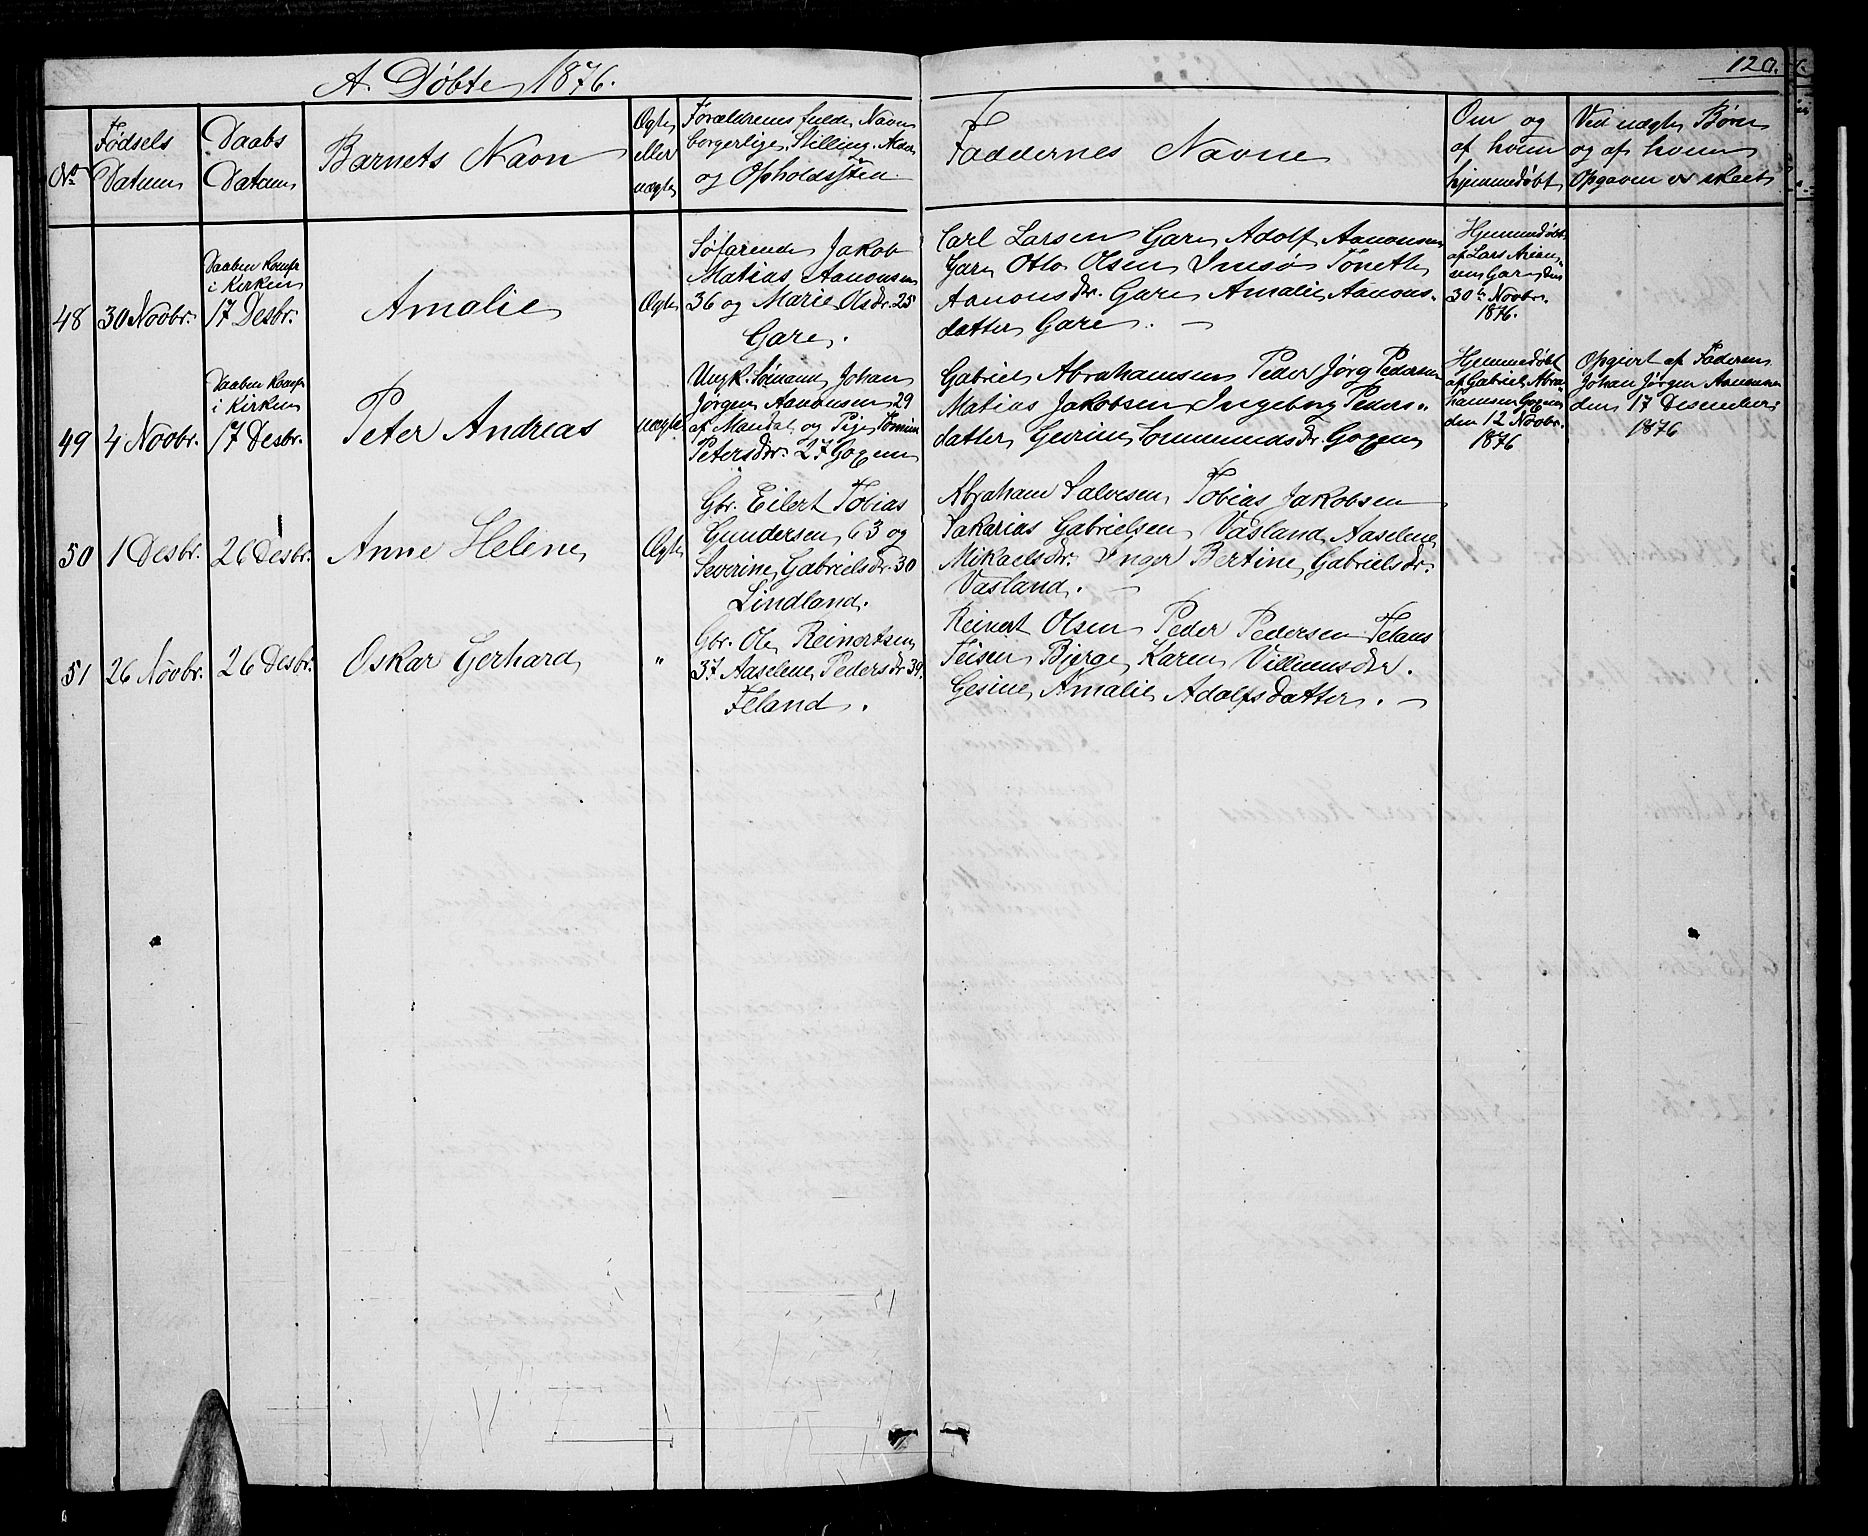 A. Döbte 1876.
120.
No
Födsels Datum
Daabs Datum
Barnets Navn
Ægte eller uægte
Forældrenes fulde Navn
borgerlige Stilling. Alder
og Opholdssted.
Faddernes Navne
Om og
af hvem
hjemmedöbt
Ved uægte Börn
og af hvem
Opgaven er skeet
48
30 Novbr.
Daaben Komfr
i Kirken
17 Desbr.
Amalie
Ægte
Söfarende Jakob
Matias Aanonsen
36 og Marie Olsdr. 25
Gare.
Carl Larsen Gare Adolf Aanonsen
Gare Otto Olsen Imsö Toneth
Aanonsdr. Gare Amalie Aanons-
datter Gare.
Hjemmedöbt
af Lars
Gare den
30te Novbr.
1876.
49
4 Novbr.
Daaben Komfr
i Kirken
17 Desbr.
Peter Andreas
uægte
Ungk. Sömand Johan
Jörgen Aanonsen 29
af Mandal og Pige
Petersdr. 27
Gabriel Abrahamsen Peder Jörg Pedersen
Matias Jakobsen Ingeborg Peders-
datter
Hjemmedöbt
af Gabriel Abra-
hamsen
den 12 Novbr.
1876
Opgivet af Faderen
Johan Jörgen Aanonsen
den 17 Desember
1876
50
1 Desbr.
26 Desbr.
Anne Helene
Ægte
Gbr. Eilert Tobias
Gundersen 63 og
Severine Gabrielsdr. 30
Lindland.
Abraham Salvesen Tobias Jakobsen
Sakarias Gabrielsen Väsland Aaselene
Mikaelsdr. Inger Bertine Gabrielsdr.
Väsland.
51
26 Novbr.
26 Desbr.
Oskar Gerhard
"
Gbr. Ole Reinertsen
37 Aaselene Pedersdr 39
Feland.
Reinert Olsen Peder Pedersen
Bjerge Karen
Gesine Amalie Adolfsdatter.